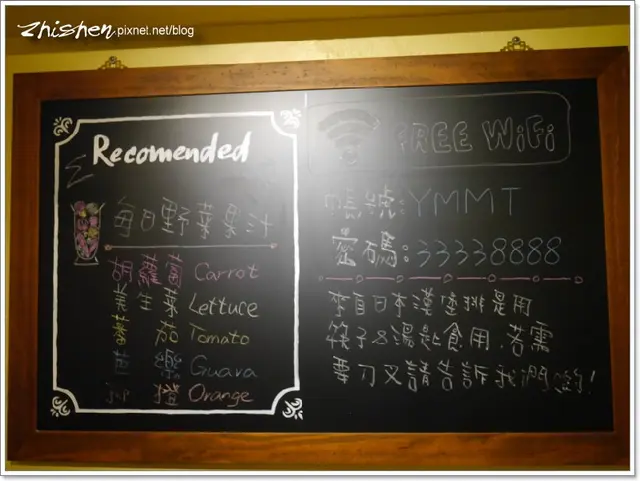 zhishen pixnet.net/blog
Recomended
每日野菜果汁
胡蘿蔔 Carrot
美生菜 Lettuce
蕃茄 Tomato
芭樂 Guava
柳橙 Orange
FREE WiFi
帳號:YMMT
密碼:33338888
來自日本漢堡排是用
筷子&湯匙食用.若需
要刀叉請告訴我們喲!